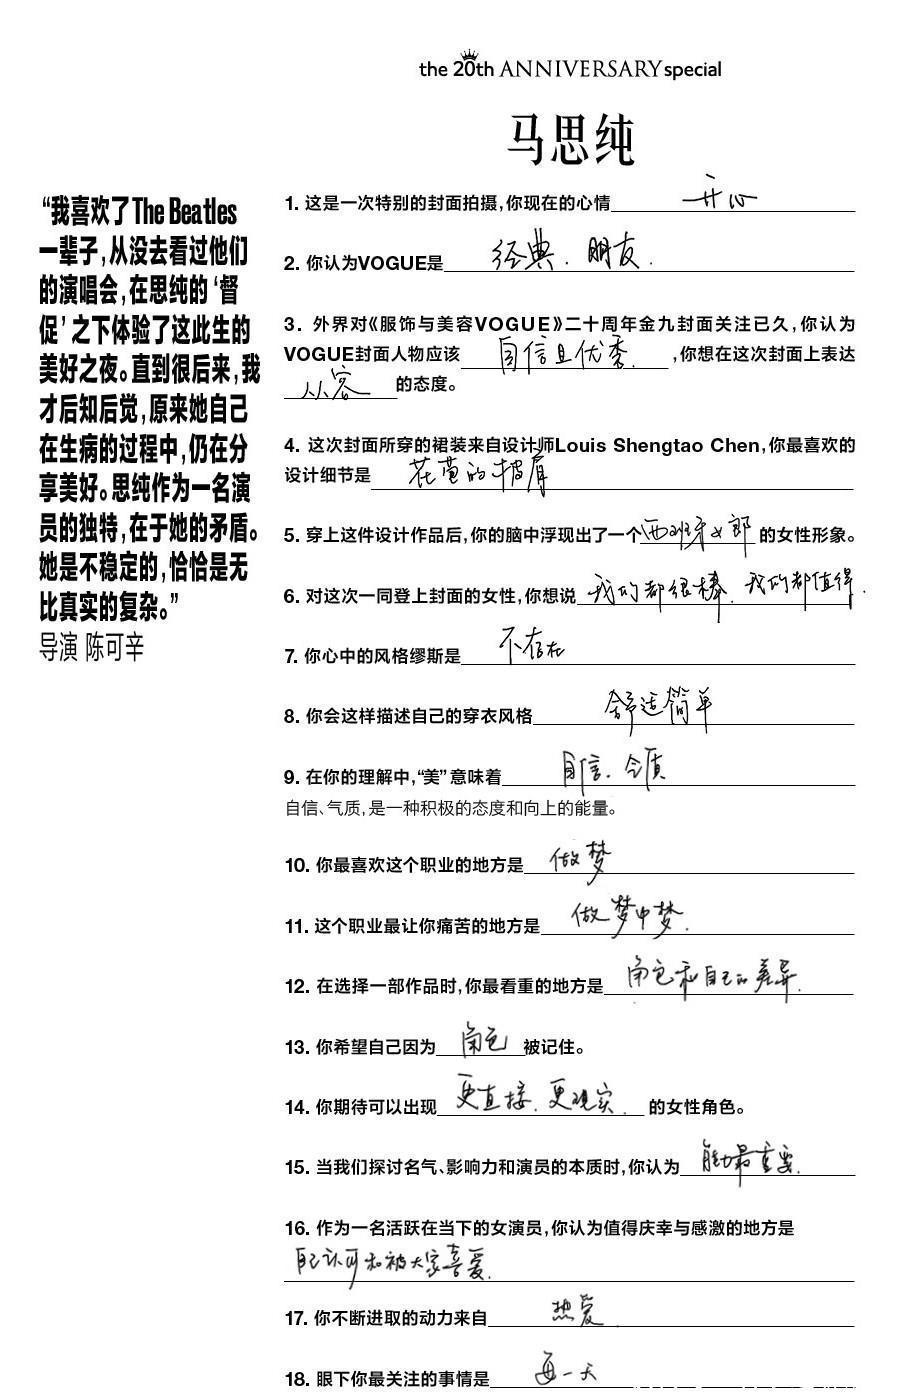 the 20th ANNIVERSARY special
马思纯
“我喜欢了The Beatles
一辈子,从没去看过他们
的演唱会,在思纯的‘督
促’之下体验了这此生的
美好之夜。直到很后来,我
才后知后觉,原来她自己
在生病的过程中,仍在分
享美好。思纯作为一名演
员的独特,在于她的矛盾。
她是不稳定的,恰恰是无
比真实的复杂。”
导演 陈可辛
1. 这是一次特别的封面拍摄,你现在的心情 开心
2. 你认为VOGUE是 经典. 朋友.
3. 外界对《服饰与美容VOGUE》二十周年金九封面关注已久,你认为
VOGUE封面人物应该 自信且优秀. ,你想在这次封面上表达
从容 的态度。
4. 这次封面所穿的裙装来自设计师Louis Shengtao Chen,你最喜欢的
设计细节是 花苞的披肩
5. 穿上这件设计作品后,你的脑中浮现出了一个 西班牙女郎 的女性形象。
6. 对这次一同登上封面的女性,你想说 我们都很棒. 我们都值得.
7. 你心中的风格缪斯是 不存在
8. 你会这样描述自己的穿衣风格 舒适简单
9. 在你的理解中,“美”意味着 自信. 气质
自信、气质,是一种积极的态度和向上的能量。
10. 你最喜欢这个职业的地方是 做梦
11. 这个职业最让你痛苦的地方是 做梦中梦.
12. 在选择一部作品时,你最看重的地方是 角色和自己的差异.
13. 你希望自己因为 角色 被记住。
14. 你期待可以出现 更直接. 更现实. 的女性角色。
15. 当我们探讨名气、影响力和演员的本质时,你认为 能力最重要.
16. 作为一名活跃在当下的女演员,你认为值得庆幸与感激的地方是
自己认可和被大家喜爱.
17. 你不断进取的动力来自 热爱.
18. 眼下你最关注的事情是 每一天